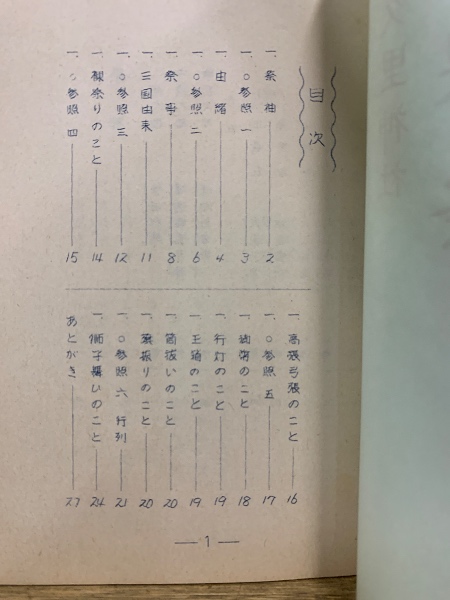 目次
一、祭神 2
一、○参照 一 3
一、由緒 4
一、○参照 二 6
一、祭事 8
一、三国由来 11
一、○参照 三 12
一、祭りのこと 14
一、○参照 四 15
一、高張弓張のこと 16
一、○参照 五 17
一、のこと 18
一、行灯のこと 19
一、のこと 19
一、笛 いのこと 20
一、振りのこと 20
一、○参照 六 行列 21
一、獅子舞ひのこと 24
あとがき 27
— 1 —